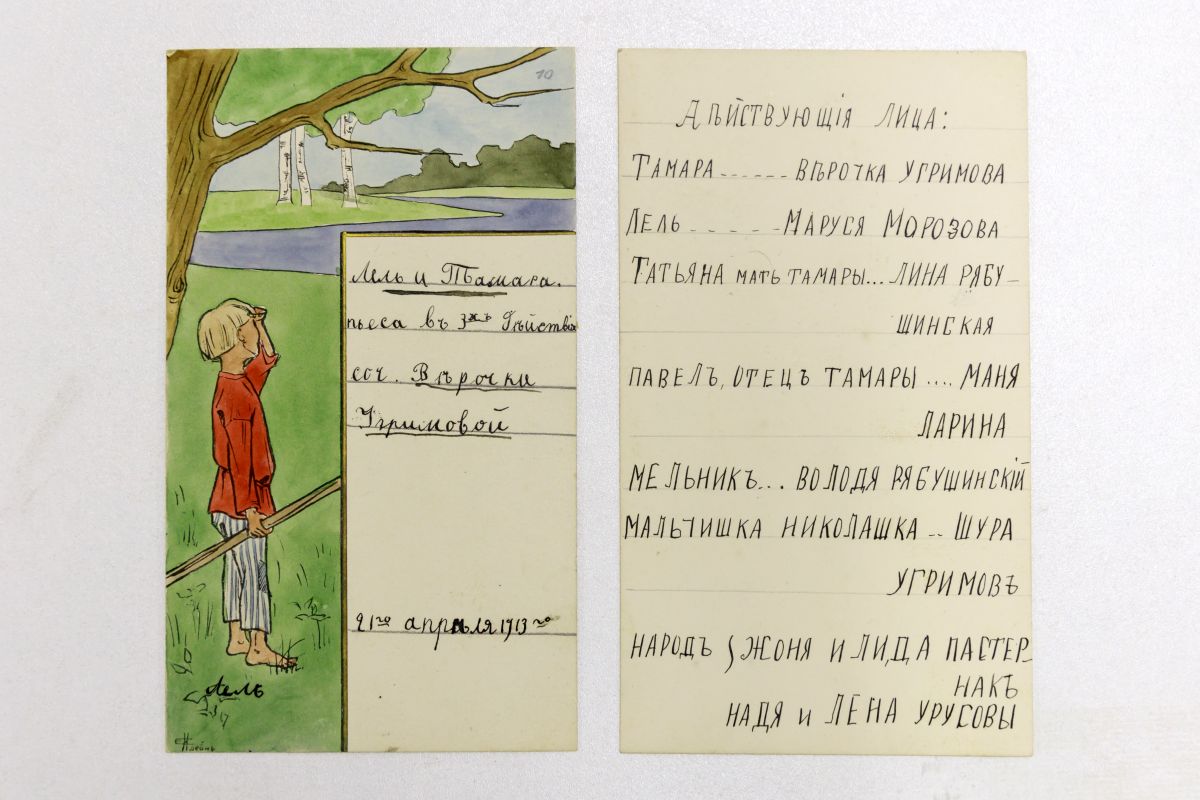 10
Лель и Тамара.
пьеса въ 3хъ дѣйствіях
соч. Вѣрочки
Угримовой
21го апрѣля 1913го
Лель
Дѣйствующія лица:
Тамара ------ Вѣрочка Угримова
Лель - - - - - Маруся Морозова
Татьяна мать Тамары... Лина Рябу-
шинская
Павелъ, отецъ Тамары .... Маня
Ларина
Мельникъ... Володя Рябушинскій
Мальчишка Николашка .. Шура
Угримовъ
Народъ Жоня и Лида Пастер-
накъ
Надя и Лена Урусовы